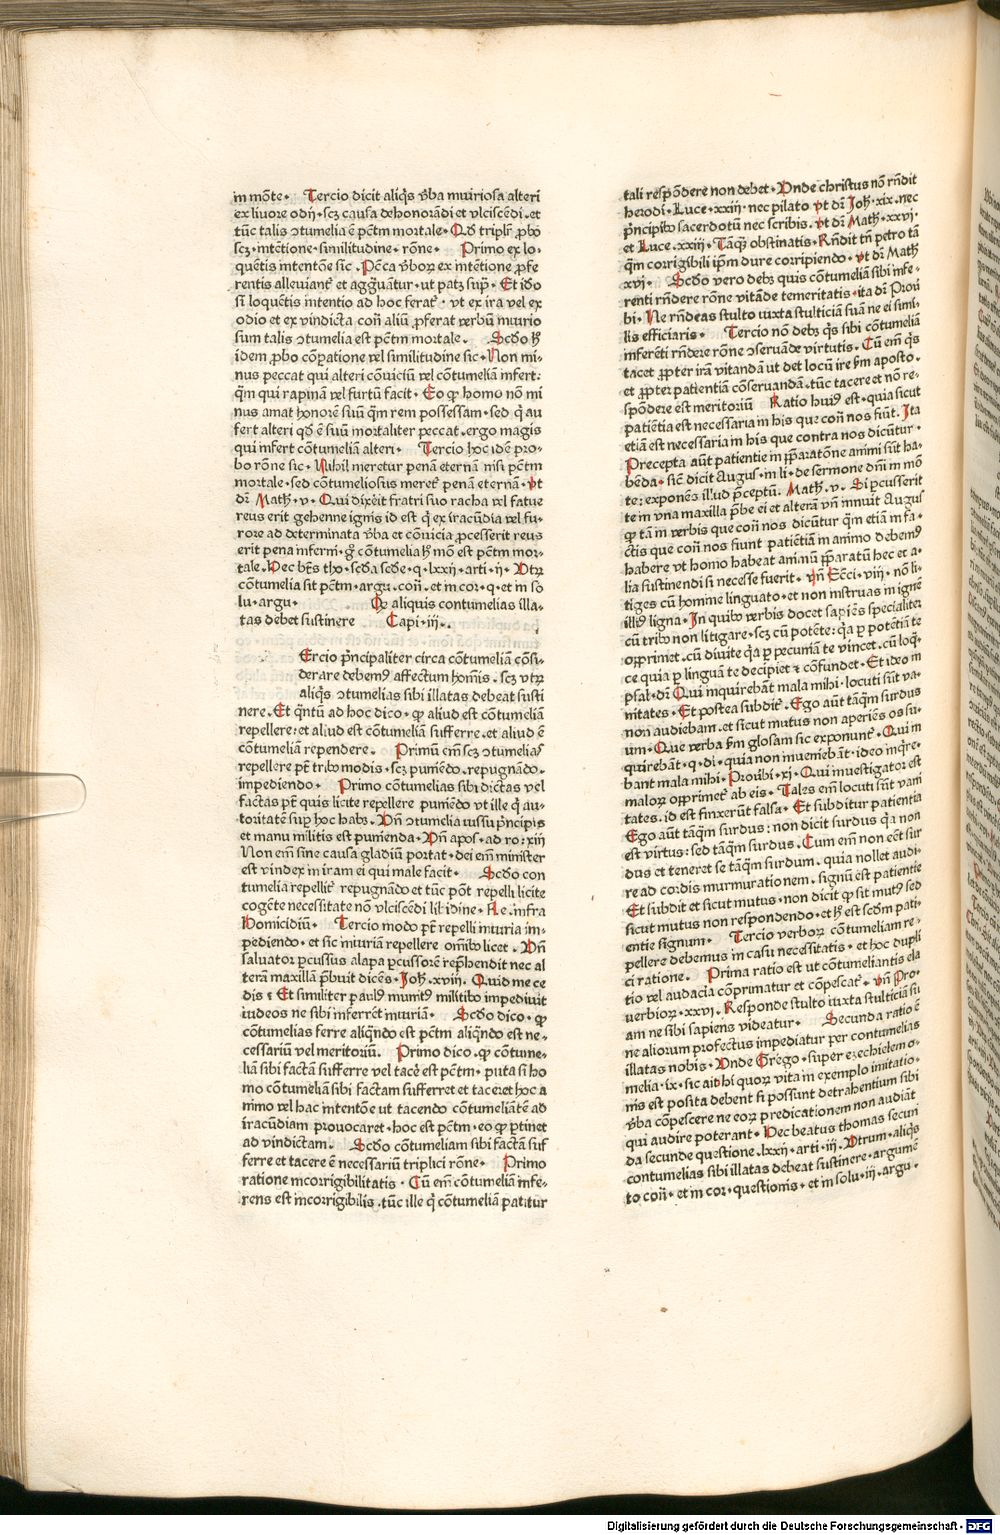 in mōte. Tercio dicit aliqͥs v̄ba iniuriosa alteri
ex liuore odij. scꝫ causa dehonorādi et vlciscēdi. et
tūc talis ↄtumelia ē pctm̄ mortale. Qd̛ triplr̄ ꝓbo
scꝫ. intentione. similitudine. rōne. Primo ex lo-
quētis intentōe sic. Pctā v̄boꝝ ex intētione ꝓfe
rentis alleuiant᷑ et aggᷓuātur. ut patꝫ sup̄. Et iđo
si loquētis intentio ad hoc ferat᷑. vt ex ira vel ex
odio et ex vindicta con̄ aliū ꝓferat verbū iniurio
sum talis ↄtumelia est pctm̄ mortale. Scđo h̄
idem ꝓbo cōpatione vel similitudine sic. Non mi-
nus peccat qui alteri cōuiciū vel cōtumeliā infert:
qm̄ qui rapinā vel furtū facit. Eo ꝙ homo nō mi
nus amat honorē suū qͣm rem possessam. sed qͥ au
fert alteri qd̛ ē suū mortaliter peccat. ergo magis
qui infert cōtumeliā alteri. Tercio hoc idē pro-
bo rōne sic. Nihil meretur penā eternā nisi pctm̄
mortale. sed cōtumeliosus meret᷑ penā eternā. vt
dr̄ Math̄. v. Qui dixerit fratri suo racha vel fatue
reus erit gehenne ignis id est qͥ ex iracūdia vel fu-
rore ad determinata v̄ba et cōuicia ꝓcesserit reus
erit pena inferni. gͦ cōtumelia h̄ mō est pctm̄ mor-
tale. Hec bt̄s tho. scđa scđe. q. lxxij. arti. ij. Vtꝝ
cōtumelia sit pctm̄. argu. con̄. et in cor. q. et in so
lu. argu. Qꝛ aliquis contumelias illa-
tas debet sustinere Capi. iij.
Ercio pͥncipaliter circa cōtumeliā cōsi-
derare debemꝰ affectum hoīnis. scꝫ vtꝝ
aliqͥs ↄtumelias sibi illatas debeat susti
nere. Et qͣntū ad hoc dico. ꝙ aliud est cōtumeliā
repellere: et aliud est cōtumeliā sufferre. et aliud ē
cōtumeliā rependere. Primū em̄ scꝫ ↄtumelias
repellere pt̄ tribꝰ modis. scꝫ puniēdo. repugnādo.
impediendo. Primo cōtumelias sibi dictas vel
factas pt̄ quis licite repellere puniēdo vt ille qͥ au-
toritatē suꝑ hoc habꝫ. Vn̄ ↄtumelia iussu pͥncipis
et manu militis est punienda. Vn̄ apos. ad ro: xiij
Non em̄ sine causa gladiū portat. dei em̄ minister
est vindex in iram ei qui male facit. Scđo con
tumelia repellit᷑ repugnādo et tūc pōt repelli licite
cogēte necessitate nō vlciscēdi libidine. Re. infra
Homicidiū. Tercio modo pt̄ repelli iniuria im-
pediendo. et sic iniuriā repellere om̄ibꝰ licet. Vn̄
saluator ꝑcussus alapa ꝑcussorē rep̄hendit nec al
terā maxillā p̄buit dicēs. Joh̄. xviij. Quid me ce
dis ⁊ Et similiter paulꝰ munitꝰ militibꝰ impediuit
iudeos ne sibi inferrēt iniuriā. Scđo dico. ꝙ
cōtumelias ferre aliqn̄do est pctm̄ aliqn̄do est ne-
cessariū vel meritoriū. Primo dico. ꝙ cōtume-
liā sibi factā sufferre vel tacē est pctm̄. puta si ho
mo cōtumeliā sibi factam sufferret et taceret hoc a
nimo vel hac intentōe ut tacendo cōtumeliātē ad
iracūdiam prouocaret. hoc est pctm̄. eo ꝙ ꝑtinet
ad vindictam. Scđo cōtumeliam sibi factā suf
ferre et tacere ē necessariū triplici rōne. Primo
ratione incorrigibilitatis. Cū em̄ cōtumeliā infe-
rens est incorrigibilis. tūc ille qͥ cōtumeliā patitur
tali respōdere non debet. Vnde christus nō rn̄dit
herodi. Luce. xxiij. nec pilato vt dr̄ Joh̄. xix. nec
pͥncipibꝰ sacerdotū nec scribis. vt dr̄ Math̄. xxvi.
et Luce. xxiij. Tāqͣ obstinatis. Rn̄dit tn̄ petro tā
qͣm corrigibili ip̄m dure corripiendo. vt dr̄ Math̄
xvi. Scđo vero debꝫ quis cōtumeliā sibi infe-
renti rn̄dere rōne vitāde temeritatis. ita dr̄ Prou
bi. Ne rn̄deas stulto iuxta stulticiā suā ne ei simi-
lis efficiaris. Tercio nō debꝫ qͥs sibi cōtumeliā
inferēti rn̄dere rōne ↄseruāde virtutis. Cū em̄ qͥs
tacet ꝓpter irā vitandā ut det locū ire ẜm aposto.
et ꝓpter patientiā cōseruandā. tūc tacere et nō re-
spōdere est meritoriū Ratio huiꝰ est. quia sicut
patiētia est necessaria in his que con̄ nos fiūt. Ita
etiā est necessaria in his que contra nos dicūtur.
Precepta aūt patientie in p̄paratōne animi sūt ha-
bēda. sic̄ dicit Augus. in li. de sermone dn̄i in mō
te: exponēs illud p̄ceptū. Math̄. v. Si ꝑcusserit
te in vna maxilla p̄be ei et alterā vn̄ innuit Augus
ꝙ tā in verbis que con̄ nos dicūtur qͣm etiā in fa-
ctis que con̄ nos fiunt patiētiā in animo debemꝰ
habere vt homo habeat animū p̄paratū hec et a-
lia sustinendi si necesse fuerit. vn̄ Ecci. viij. nō li-
tiges cū homine linguato. et non instruas in ignē
illiꝰ ligna. In quibꝰ verbis docet sapiēs specialiter
cū tribꝰ non litigare. scꝫ cū potēte: qꝛ ꝑ potētiā te
opprimet. cū diuite qꝛ ꝑ pecuniā te vincet. cū loqͣ-
ce quia ꝑ linguā te decipiet ⁊ cōfundet. Et ideo in
psal. dr̄ Qui inquirebāt mala mihi. locuti sūt va-
nitates. Et postea subdit᷑. Ego aūt tāqͣm surdus
non audiebam. et sicut mutus non aperiēs os su-
um. Que verba ẜm glosam sic exponunt᷑. Qui in
quirebāt. q. di. quia non inueniebāt. ideo inqͥre-
bant mala mihi. Prouibi. xi. Qui inuestigator est
maloꝝ opprimet᷑ ab eis. Tales em̄ locuti sūt vani
tates. id est finxerūt falsa. Et subditur patientia
Ego aūt tāqͣm surdus: non dicit surdus qꝛ non
est virtus: sed tāqͣm surdus. Cum em̄ non eēt sur
dus et teneret se tāqͣm surdum. quia nollet audi-
re ad cordis murmurationem. signū est patientie
Et subdit et sicut mutus. non dicit ꝙ sit mutꝰ sed
sicut mutus non respondendo. et h̄ est scđm pati-
entie signum. Tercio verboꝝ cōtumeliam re-
pellere debemus in casu necessitatis. et hoc dupli
ci ratione. Prima ratio est ut cōtumeliantis ela
tio vel audacia cōprimatur et cōpescat᷑. vn̄ Pro-
uerbioꝝ. xxvi. Responde stulto iuxta stulticiā su
am ne sibi sapiens videatur. Secunda ratio ē
ne aliorum profectus impediatur per contumelias
illatas nobis. Vnde Grego. super ezechielem o-
melia. ix. sic ait hi quoꝝ vita in exemplo imitatio-
nis est posita debent si possunt detrahentium sibi
v̄ba cōpescere ne eoꝝ predicationem non audiāt
qui audire poterant. Hec beatus thomas secun
da secunde questione. lxxij. arti. iij. Vtrum. aliqͥs
contumelias sibi illatas debeat sustinere. argumē
to con̄. et in cor. questionis. et in solu. iij. argu.
Digitalisierung gefördert durch die Deutsche Forschungsgemeinschaft - DFG